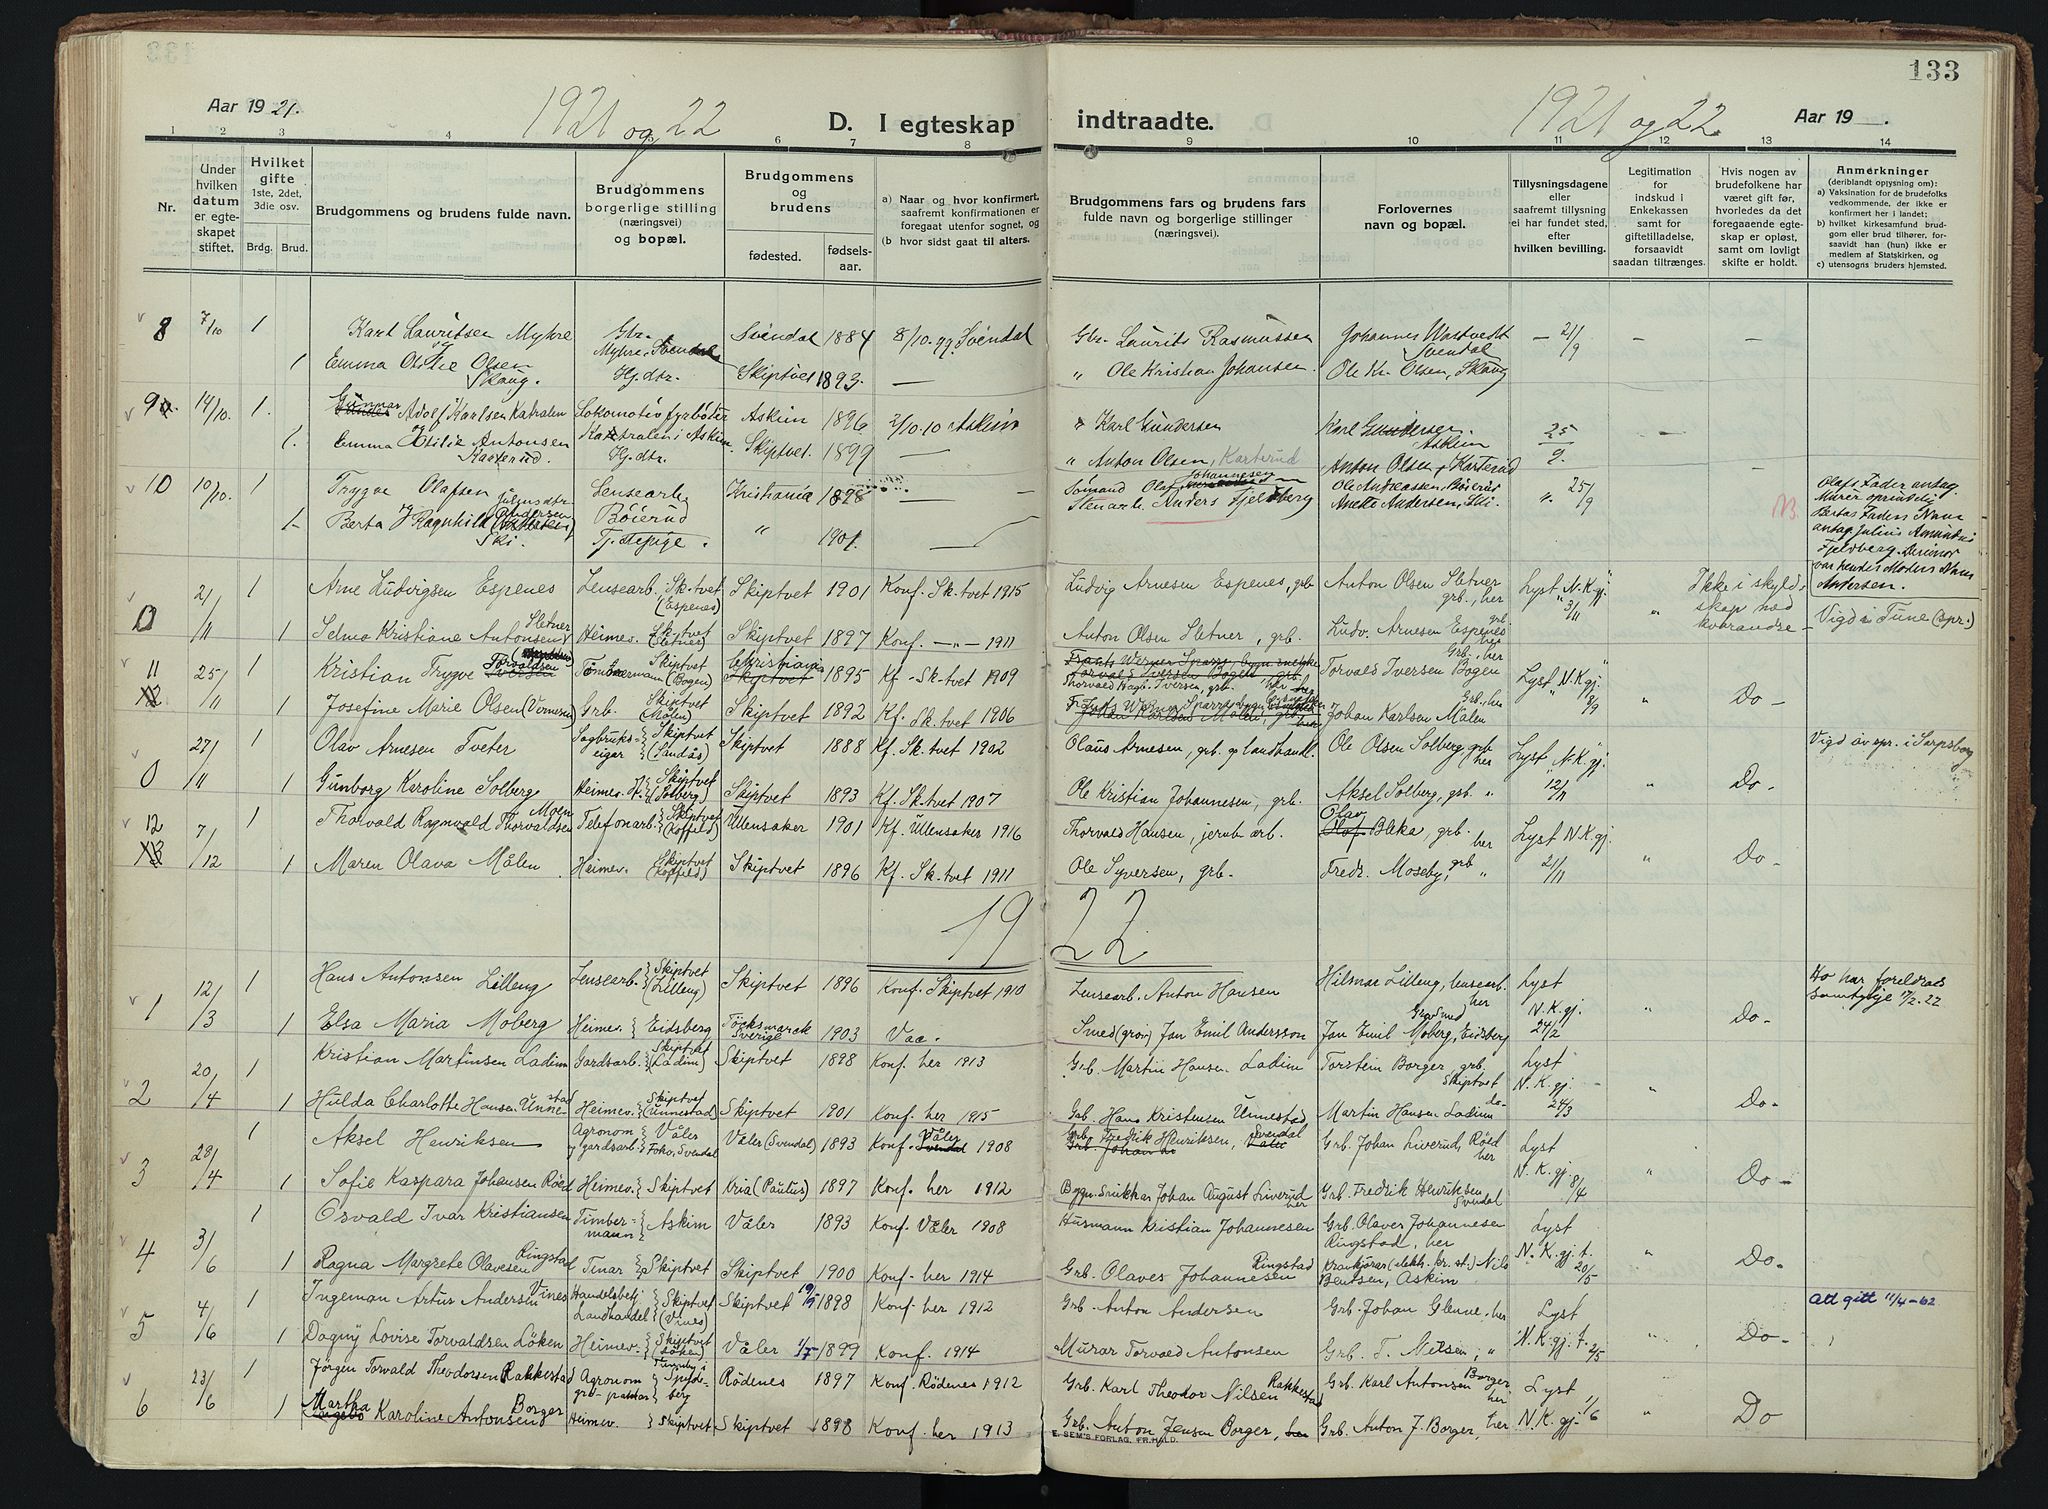 133
Aar 19 21.
1921 og 22
D. I egteskap indtraadte.
1921 og 22
Aar 19 — .
1 2 3 4 6 7 8 9 10 11 12 13 14
Nr.
Under hvilken datum er egteskapet stiftet.
Hvilket gifte
1ste, 2det, 3die osv.
Brdg. Brud.
Brudgommens og brudens fulde navn.
Brudgommens borgerlige stilling (næringsvei) og bopæl.
Brudgommens og brudens
fødested. fødselsaar.
a) Naar og hvor konfirmert, saafremt konfirmationen er foregaat utenfor sognet, og
(b hvor sidst gaat til alters.
Brudgommens fars og brudens fars fulde navn og borgerlige stillinger (næringsvei).
Forlovernes navn og bopæl.
Tillysningsdagene eller saafremt tillysning ei har fundet sted, efter hvilken bevilling.
Legitimation for indskud i Enkekassen samt for giftetilladelse, forsaavidt saadan tiltrænges.
Hvis nogen av brudefolkene har været gift før, hvorledes da det foregaaende egteskap er opløst, samt om lovligt skifte er holdt.
Anmerkninger
(deriblandt opjysning om):
a) Vaksination for de brudefolks vedkommende, der ikke er konfirmert her i landet;
b) hvilket kirkesamfund brudgom eller brud tilhører, forsaavidt han (hun) ikke er medlem av Statskirken, og
c) utensogns bruders hjemsted.
8 7/10 1 Karl Lauritsen Myhre Gbr. Myhre, Svendal Svendal 1884 8/10.99 Svendal Gbr. Laurits Rasmussen Johannes Wastvedt Svendal — 21/9 — —
1 Emma Otilie Olsen Skaug. Hj.dtr. Skiptvet 1893. — " Ole Kristian Johansen Ole Kr. Olsen, Skaug
9 14/10. 1. Gunnar Adolf Karlsen Katralen Lokomotivfyrbøter Katralen i Askim Askim 1896 2/10.10 Askim " Karl Gundersen Karl Gundersen Askim 25/9. —
1. Emma Otilie Antonsen Karterud. Hj.dtr. Skiptvet. 1899 — " Anton Olsen, Karterud Anton Olsen, Karterud
10 10/10. 1 Trygve Olafsen Lensearb. Bøierud Kristiania 1898 — Sømand Olaf Johannesen Ole Andreassen Bøierud " 25/9 NB.
1 Berta Ragnhild Juliusdtr. Andersen Ski. Tj.pige. " 1901. — Stenarb. Anders Fjeldberg Anette Andersen, Ski.
Olafs Fader antag. Murer oprindelig Bertas Faders Navn antag. Julius Amundsen Fjeldberg. Derimot var hendes Moders Navn Andersen.
0 21/11 1 Arne Ludvigsen Espenes Lensearb. Sk.tvet (Espenes) Skiptvet 1901 Konf. Sk.tvet 1915 Ludvig Arnesen Espenes, grb. Anton Olsen Sletner grb., her Lyst N.K.gj. 3/11 " Ikke i skyldskap med hverandre
1 Selma Kristiane Antonsen Sletner Heimev. Sk.tvet (Sletner) Skiptvet 1897 Konf. —"— 1911 Anton Olsen Sletner, grb. Ludv. Arnesen Espenes grb. her Vigd i Tune (spr.)
11 25/11 1 Kristian Trygve Torvaldsen Tømmermann Skiptvet (Bogen) Christiania 1895 Kf. Sk-tvet 1909 Thorvald Ragb. Iversen, grb. Torvald Iversen Bogen Grb., her Lyst N.K.gj. 9/9 " Do —
1 Josefine Marie Olsen Grb. Skiptvet (Målen) Skiptvet 1892 Kf. Sk.tvet 1906 Johan Karlsen Målen Grb., her
0 27/11 1 Olav Arnesen Tveter Sagbrukseigar Skiptvet (Sandås) Skiptvet 1888 Kf. Sk.tvet 1902 Olaus Arnesen, grb. og landhandl. Ole Olsen Solberg, grb. her Lyst N.K.gj. 12/11 " Do - Vigd av spr. i Sarpsborg
1 Gunborg Karoline Solberg Heimev. Skiptvet (Solberg) Skiptvet 1893 Kf. Sk.tvet 1907 Ole Kristian Johannesen, grb. Aksel Solberg, grb. "
12 7/12 1 Thorvald Ragnvald Thorvaldsen Moen Telefonarb. Skiptvet (Koffeld) Ullensaker 1901 Kf. Ullensaker 1916 Thorvald Hansen, jernb. arb. Olav Bleka, grb. her Lyst N.K.gj. 21/11 " Do -
1 Maren Olava Målen Heimev. Skiptvet (Koffeld) Skiptvet 1896 Kf. Sk.tvet 1911 Ole Syversen, grb. Fredr. Moseby, grb. "
1922
1 12/3 1 Hans Antonsen Lilleng Lensearb. Skiptvet (Lilleng) Skiptvet 1896 Konf. Skiptvet 1910 Lensearb. Anton Hansen Hilmar Lilleng, lensearb. her Lyst N.K.gj. 24/2 " Do - Ho har foreldres samtykje 17/2.22
1 Elsa Maria Moberg Heimev. Eidsberg Töcksmarck Sverige 1903 Vac. Smed (grov) Jan Emil Andersson Jan Emil Moberg, Eidsberg
2 20/4 1 Kristian Martinsen Ladim Gardsarb. Skiptvet (Ladim) Skiptvet 1898 Konf. her 1913 Grb. Martin Hansen Ladim Torstein Borger, grb. Skiptvet Lyst N.K.gj. 24/3 " Do -
1 Hulda Charlotte Hansen Unnestad Heimev. Skiptvet (Unnestad) Skiptvet 1901 Konf. her 1915 Grb. Hans Kristensen Unnestad Martin Hansen Ladim do-
3 28/4 1 Aksel Henriksen Agronom og gardsarb. Våler Svendal Våler (Svendal) 1893 Konf. Våler 1908 Grb. Fredrik Henriksen, Svendal Grb. Johan Liverud, Röed her Lyst N.K.gj. 8/4 " Do -
1 Sofie Kaspara Johansen Röed Heimev. Skiptvet Kria (Paulus) 1897 Konf. her 1912 Bygn.snikkar Johan August Liverud her Grb. Fredrik Henriksen Svendal
4 3/6 1 Osvald Ivar Kristiansen Timbermann Askim Våler 1893 Konf. Våler 1908 Husmann Kristian Johannesen Grb. Olaves Johannesen Ringstad, her Lyst N.K.gj. t. 20/5 " Do -
1 Ragna Margrete Olavesen Ringstad Tenar Skiptvet Skiptvet 1900 Konf. her 1914 Grb. Olaves Johannesen Ringstad Krankjörer (elektr. kr. st.) Nils Bentsen, Askim
5 4/6 1 Ingeman Artur Andersen Vines Handelsbetj. Landhandel Skiptvet (Vines) Skiptvet 19/9 1898 Konf. her 1912 Grb. Anton Andersen Grb. Johan Glenne, her Lyst N.K.gj. t. 2/5 " Do - Att gift 11/4-62
1 Dagny Lovise Torvaldsen Löken Heimev. Skiptvet (Löken) Våler 1/7 1899 Konf. 1914 Murar Torvald Antonsen Grb. T. Nilsen, "
6 23/6 1 Jörgen Torvald Theodorsen Rakkestad Agronom Spydeberg Rödenes 1897 Konf. Rödenes 1912 Grb. Karl Theodor Nilsen Rakkestad Grb. Karl Antonsen Borger her Lyst N.K.gj. 1/6 " Do
1 Martha Karoline Antonsen Borger Heimev. Skiptvet Skiptvet 1898 Konf. her 1913 Grb. Anton Jensen Borger, her Grb. Anton J. Borger, her
E. SEM'S FORLAG, FR.HALD.